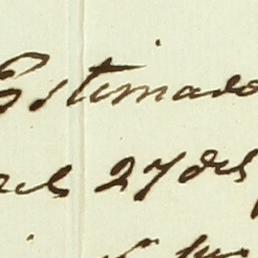 Estimado
del 27 del